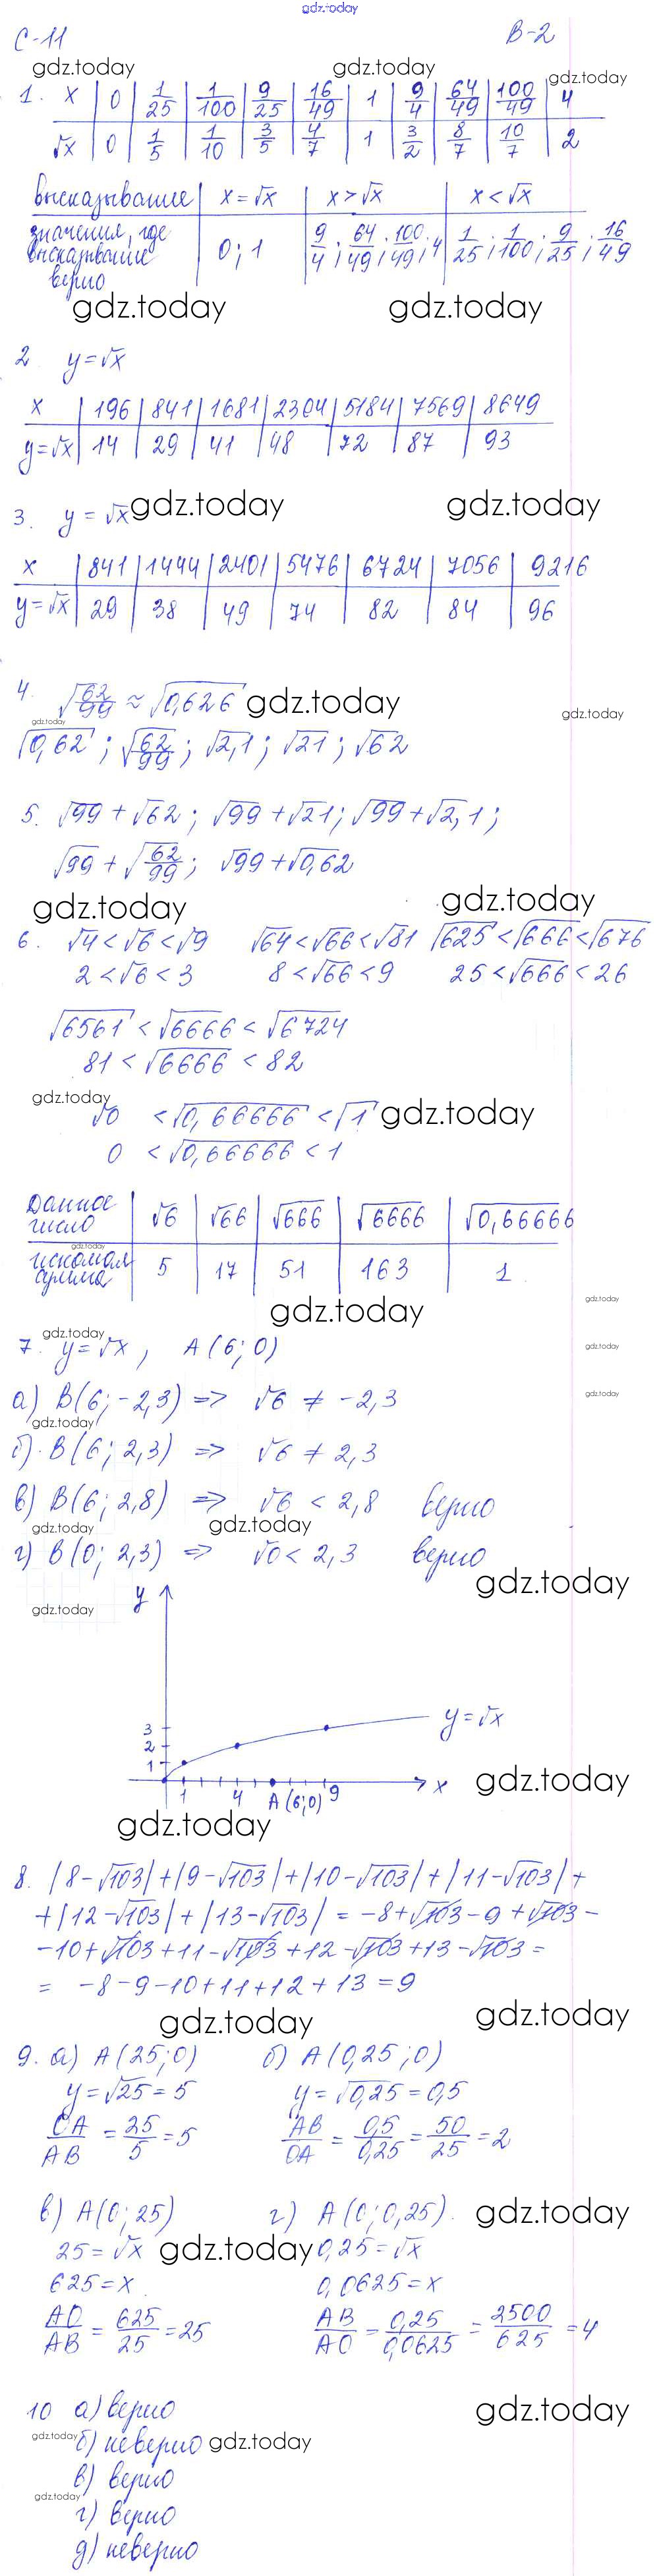 gdz.today
С-11 В-2
gdz.today gdz.today gdz.today
1. x | 0 | 1/25 | 1/100 | 9/25 | 16/49 | 1 | 9/4 | 64/49 | 100/49 | 4
√x | 0 | 1/5 | 1/10 | 3/5 | 4/7 | 1 | 3/2 | 8/7 | 10/7 | 2
высказывание | x = √x | x > √x | x < √x
значения, где высказывание верно | 0; 1 | 9/4; 64/49; 100/49; 4 | 1/25; 1/100; 9/25; 16/49
gdz.today gdz.today
2 y = √x
x | 196 | 841 | 1681 | 2304 | 5184 | 7569 | 8649
y = √x | 14 | 29 | 41 | 48 | 72 | 87 | 93
gdz.today gdz.today
3. y = √x
x | 841 | 1444 | 2401 | 5476 | 6724 | 7056 | 9216
y = √x | 29 | 38 | 49 | 74 | 82 | 84 | 96
4. √(62/99) ≈ √0,626 gdz.today gdz.today
gdz.today
√0,62; √(62/99); √2,1; √21; √62
5. √99 + √62; √99 + √21; √99 + √2,1;
√99 + √(62/99); √99 + √0,62
gdz.today gdz.today
6. √4 < √6 < √9 √64 < √66 < √81 √625 < √666 < √676
2 < √6 < 3 8 < √66 < 9 25 < √666 < 26
√6561 < √6666 < √6724
81 < √6666 < 82
gdz.today
√0 < √0,66666 < √1 gdz.today
0 < √0,66666 < 1
Данное число | √6 | √66 | √666 | √6666 | √0,66666
gdz.today
искомая сумма | 5 | 17 | 51 | 163 | 1
gdz.today gdz.today
gdz.today
7. y = √x, A(6; 0) gdz.today
а) B(6; -2,3) => √6 ≠ -2,3 gdz.today
gdz.today
б) B(6; 2,3) => √6 ≠ 2,3
в) B(6; 2,8) => √6 < 2,8 верно
gdz.today gdz.today
г) B(0; 2,3) => √0 < 2,3 верно
gdz.today
y
gdz.today
3
y = √x
2
1
gdz.today
1 4 A(6;0) 9 x
gdz.today
8. |8-√103|+|9-√103|+|10-√103|+|11-√103|+
+|12-√103|+|13-√103| = -8+√103-9+√103-
-10+√103+11-√103+12-√103+13-√103=
= -8-9-10+11+12+13=9
gdz.today gdz.today
9. а) A(25;0) б) A(0,25;0)
y = √25 = 5 y = √0,25 = 0,5
OA/AB = 25/5 = 5 AB/OA = 0,5/0,25 = 50/25 = 2
в) A(0; 25) г) A(0; 0,25). gdz.today
25 = √x gdz.today 0,25 = √x
625 = x 0,0625 = x
AO/AB = 625/25 = 25 AB/AO = 0,25/0,0625 = 2500/625 = 4
10 а) верно gdz.today
gdz.today б) неверно gdz.today
в) верно
gdz.today
г) верно
д) неверно